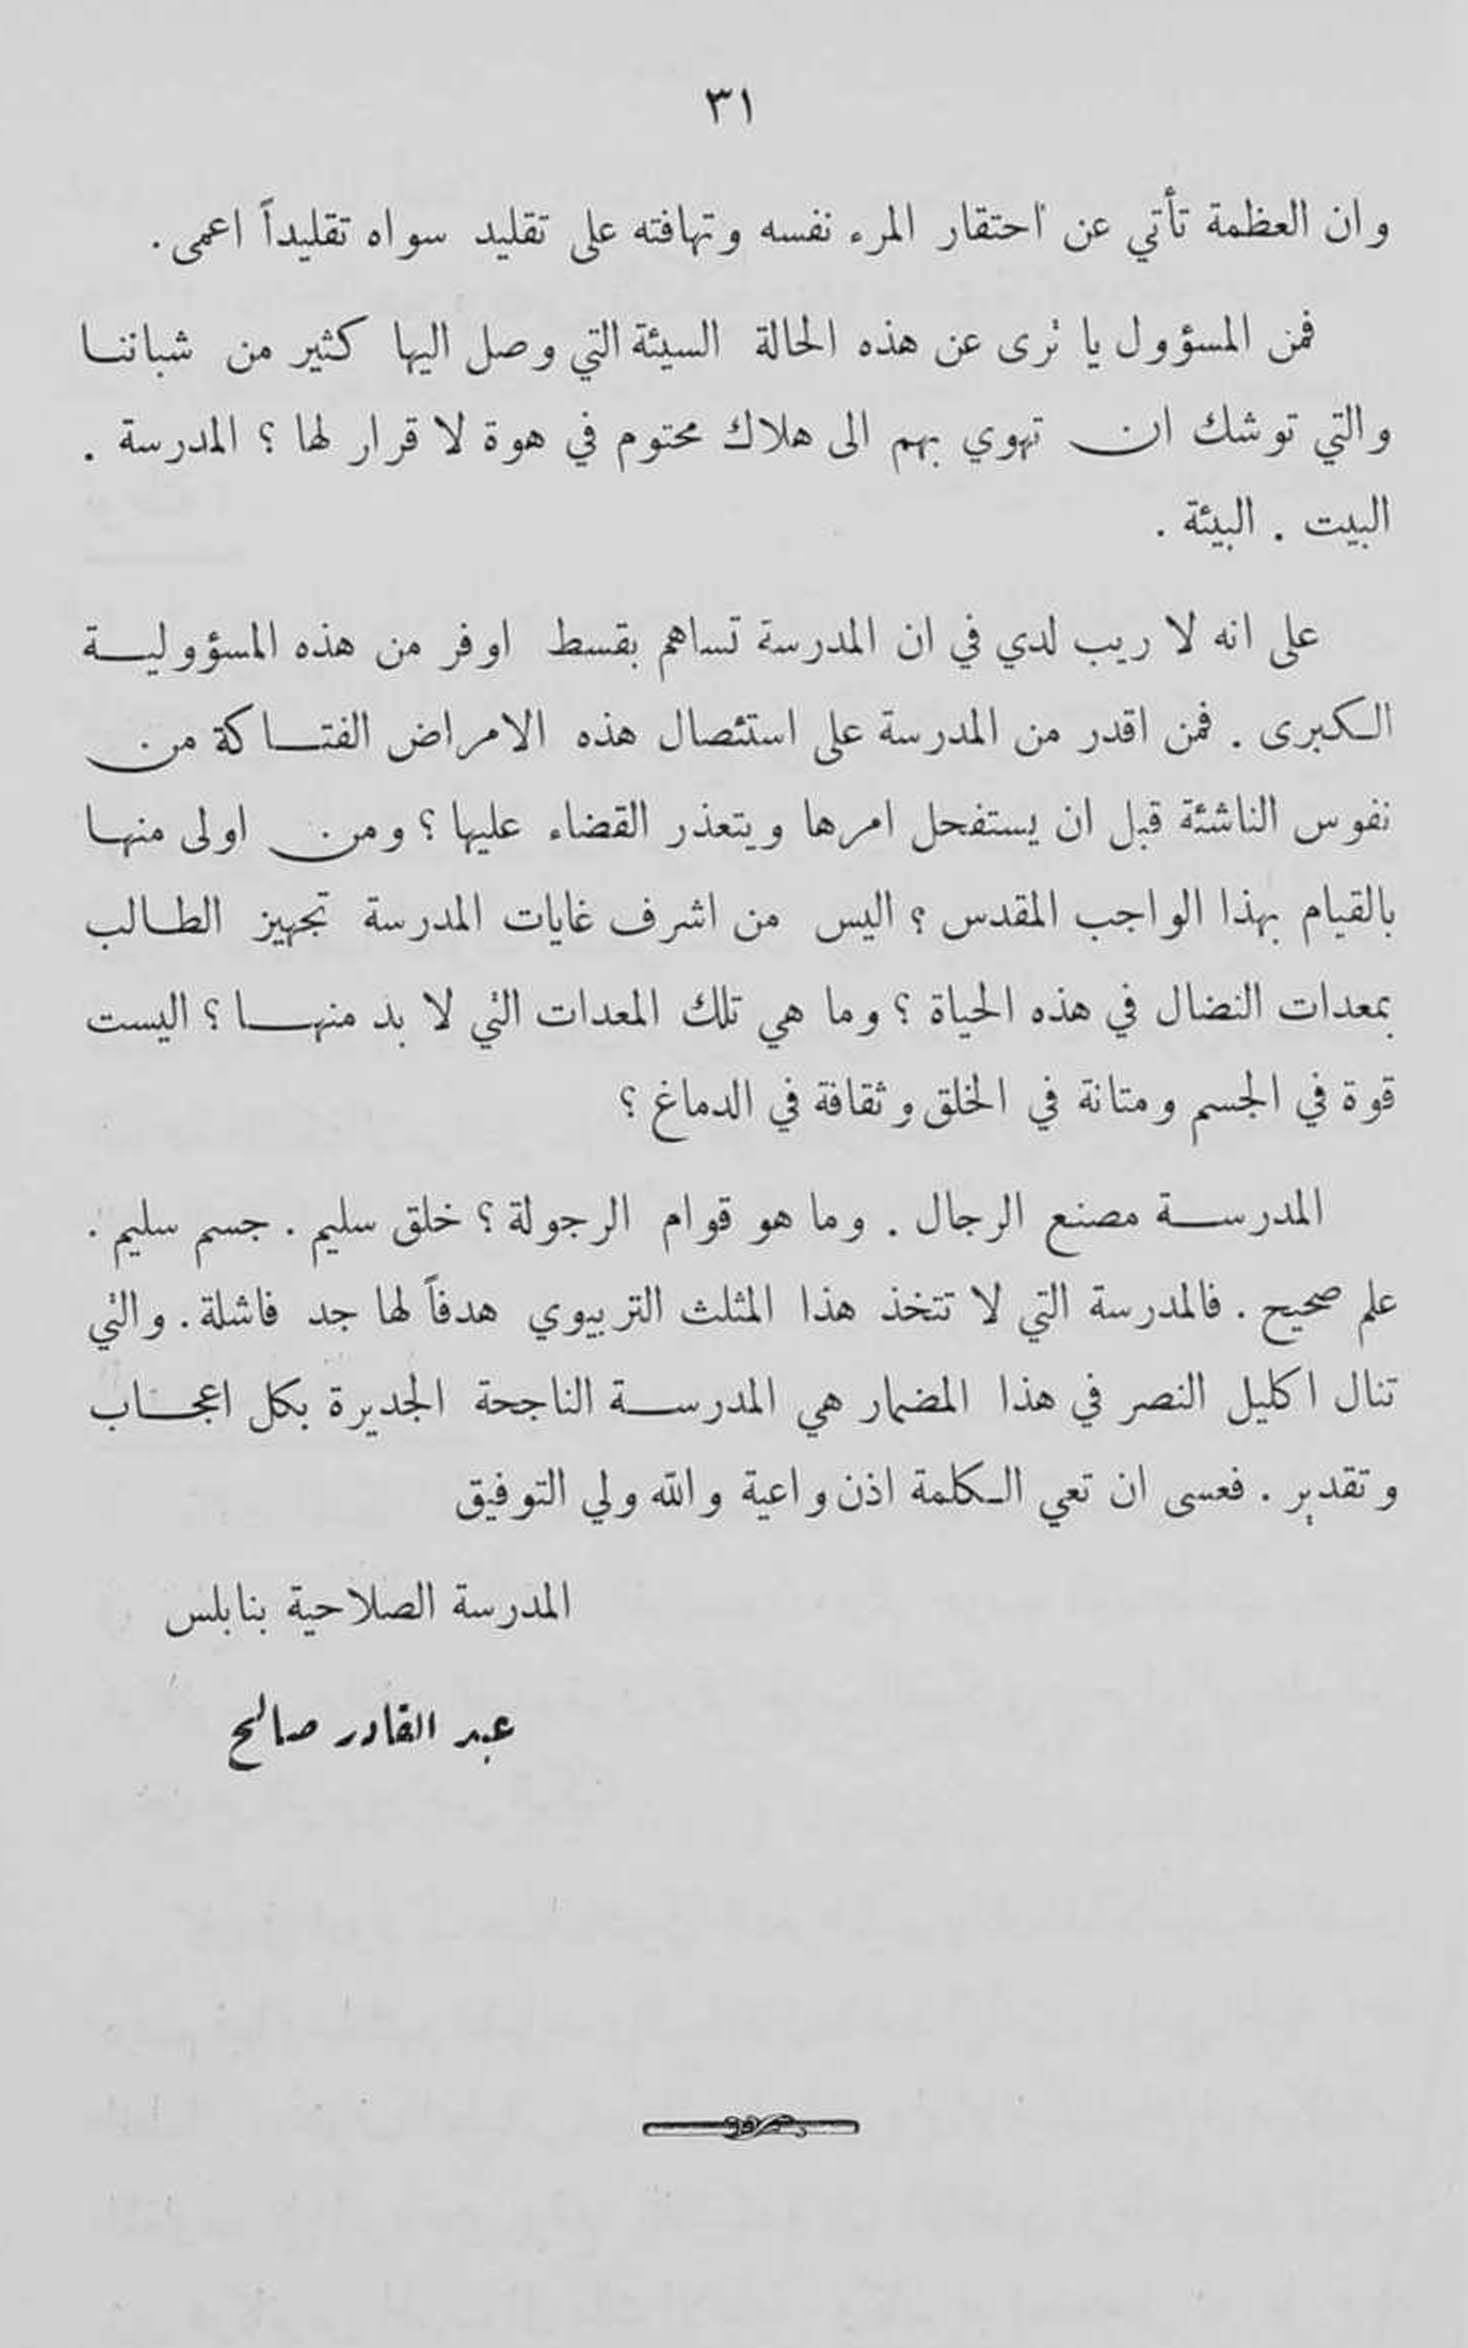 ٣١
وان العظمة تأتي عن احتقار المرء نفسه وتهافته على تقليد سواه تقليداً اعمى .
فمن المسؤول يا تُرى عن هذه الحالة السيئة التي وصل اليها كثير من شباننا
والتي توشك ان تهوي بهم الى هلاك محتوم في هوة لا قرار لها ؟ المدرسة .
البيت . البيئة .
على انه لا ريب لدي في ان المدرسة تساهم بقسط اوفر من هذه المسؤولية
الكبرى . فمن اقدر من المدرسة على استئصال هذه الامراض الفتاكة من
نفوس الناشئة قبل ان يستفحل امرها ويتعذر القضاء عليها ؟ ومن اولى منها
بالقيام بهذا الواجب المقدس ؟ اليس من اشرف غايات المدرسة تجهيز الطالب
بمعدات النضال في هذه الحياة ؟ وما هي تلك المعدات التي لا بد منها ؟ اليست
قوة في الجسم ومتانة في الخلق وثقافة في الدماغ ؟
المدرسة مصنع الرجال . وما هو قوام الرجولة ؟ خلق سليم . جسم سليم .
علم صحيح . فالمدرسة التي لا تتخذ هذا المثلث التربيوي هدفاً لها جد فاشلة . والتي
تنال اكليل النصر في هذا المضمار هي المدرسة الناجحة الجديرة بكل اعجاب
وتقدير . فعسى ان تعي الكلمة اذن واعية والله ولي التوفيق
المدرسة الصلاحية بنابلس
عبد القادر صالح